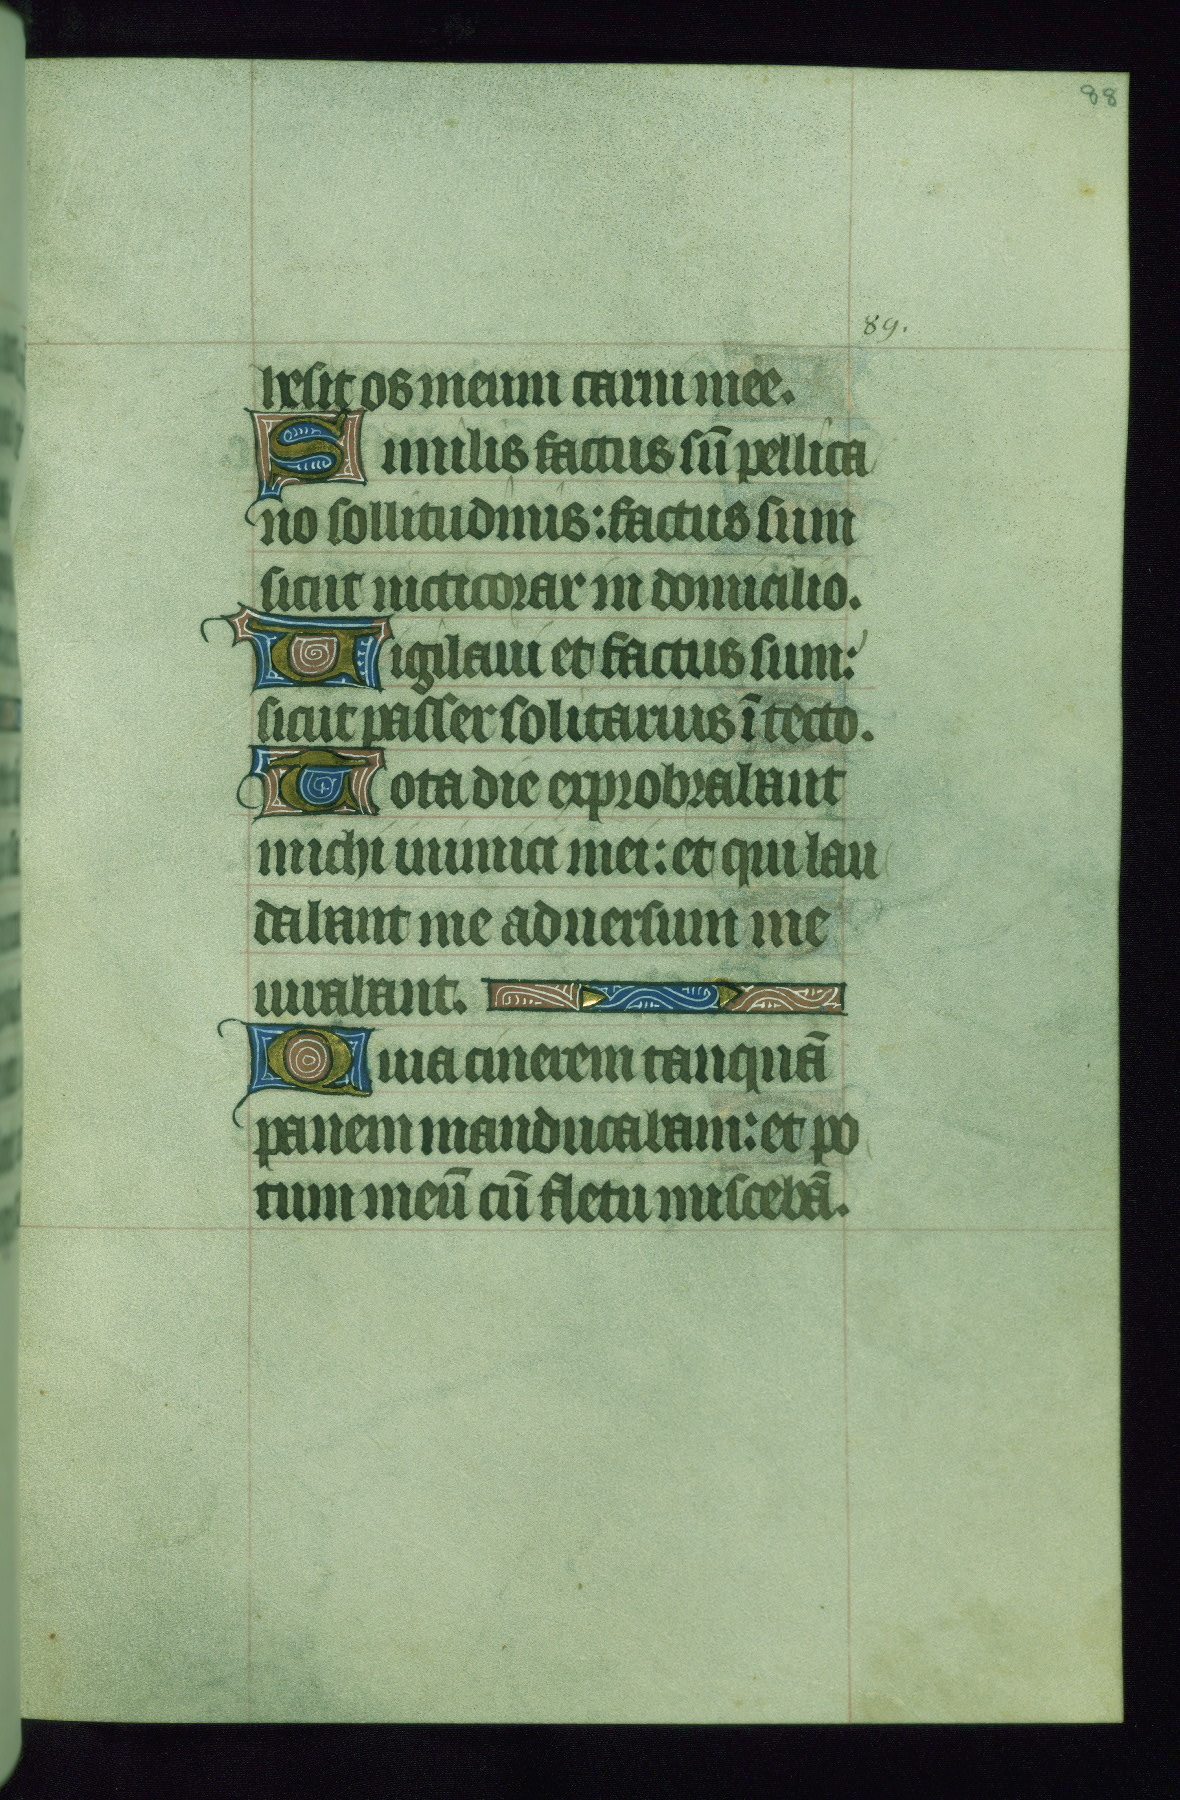 88
89.
hesit os meum carni mee.
Similis factus sũ pellica
no sollitudinis: factus sum
sicut nicticorax in domicilio.
Vigilaui et factus sum:
sicut passer solitarius ĩ tecto.
Tota die exprobrabant
michi inimici mei: et qui lau
dabant me aduersum me
iurabant.
Quia cinerem tanquã
panem manducabam: et po
tum meũ cũ fletu miscebã.